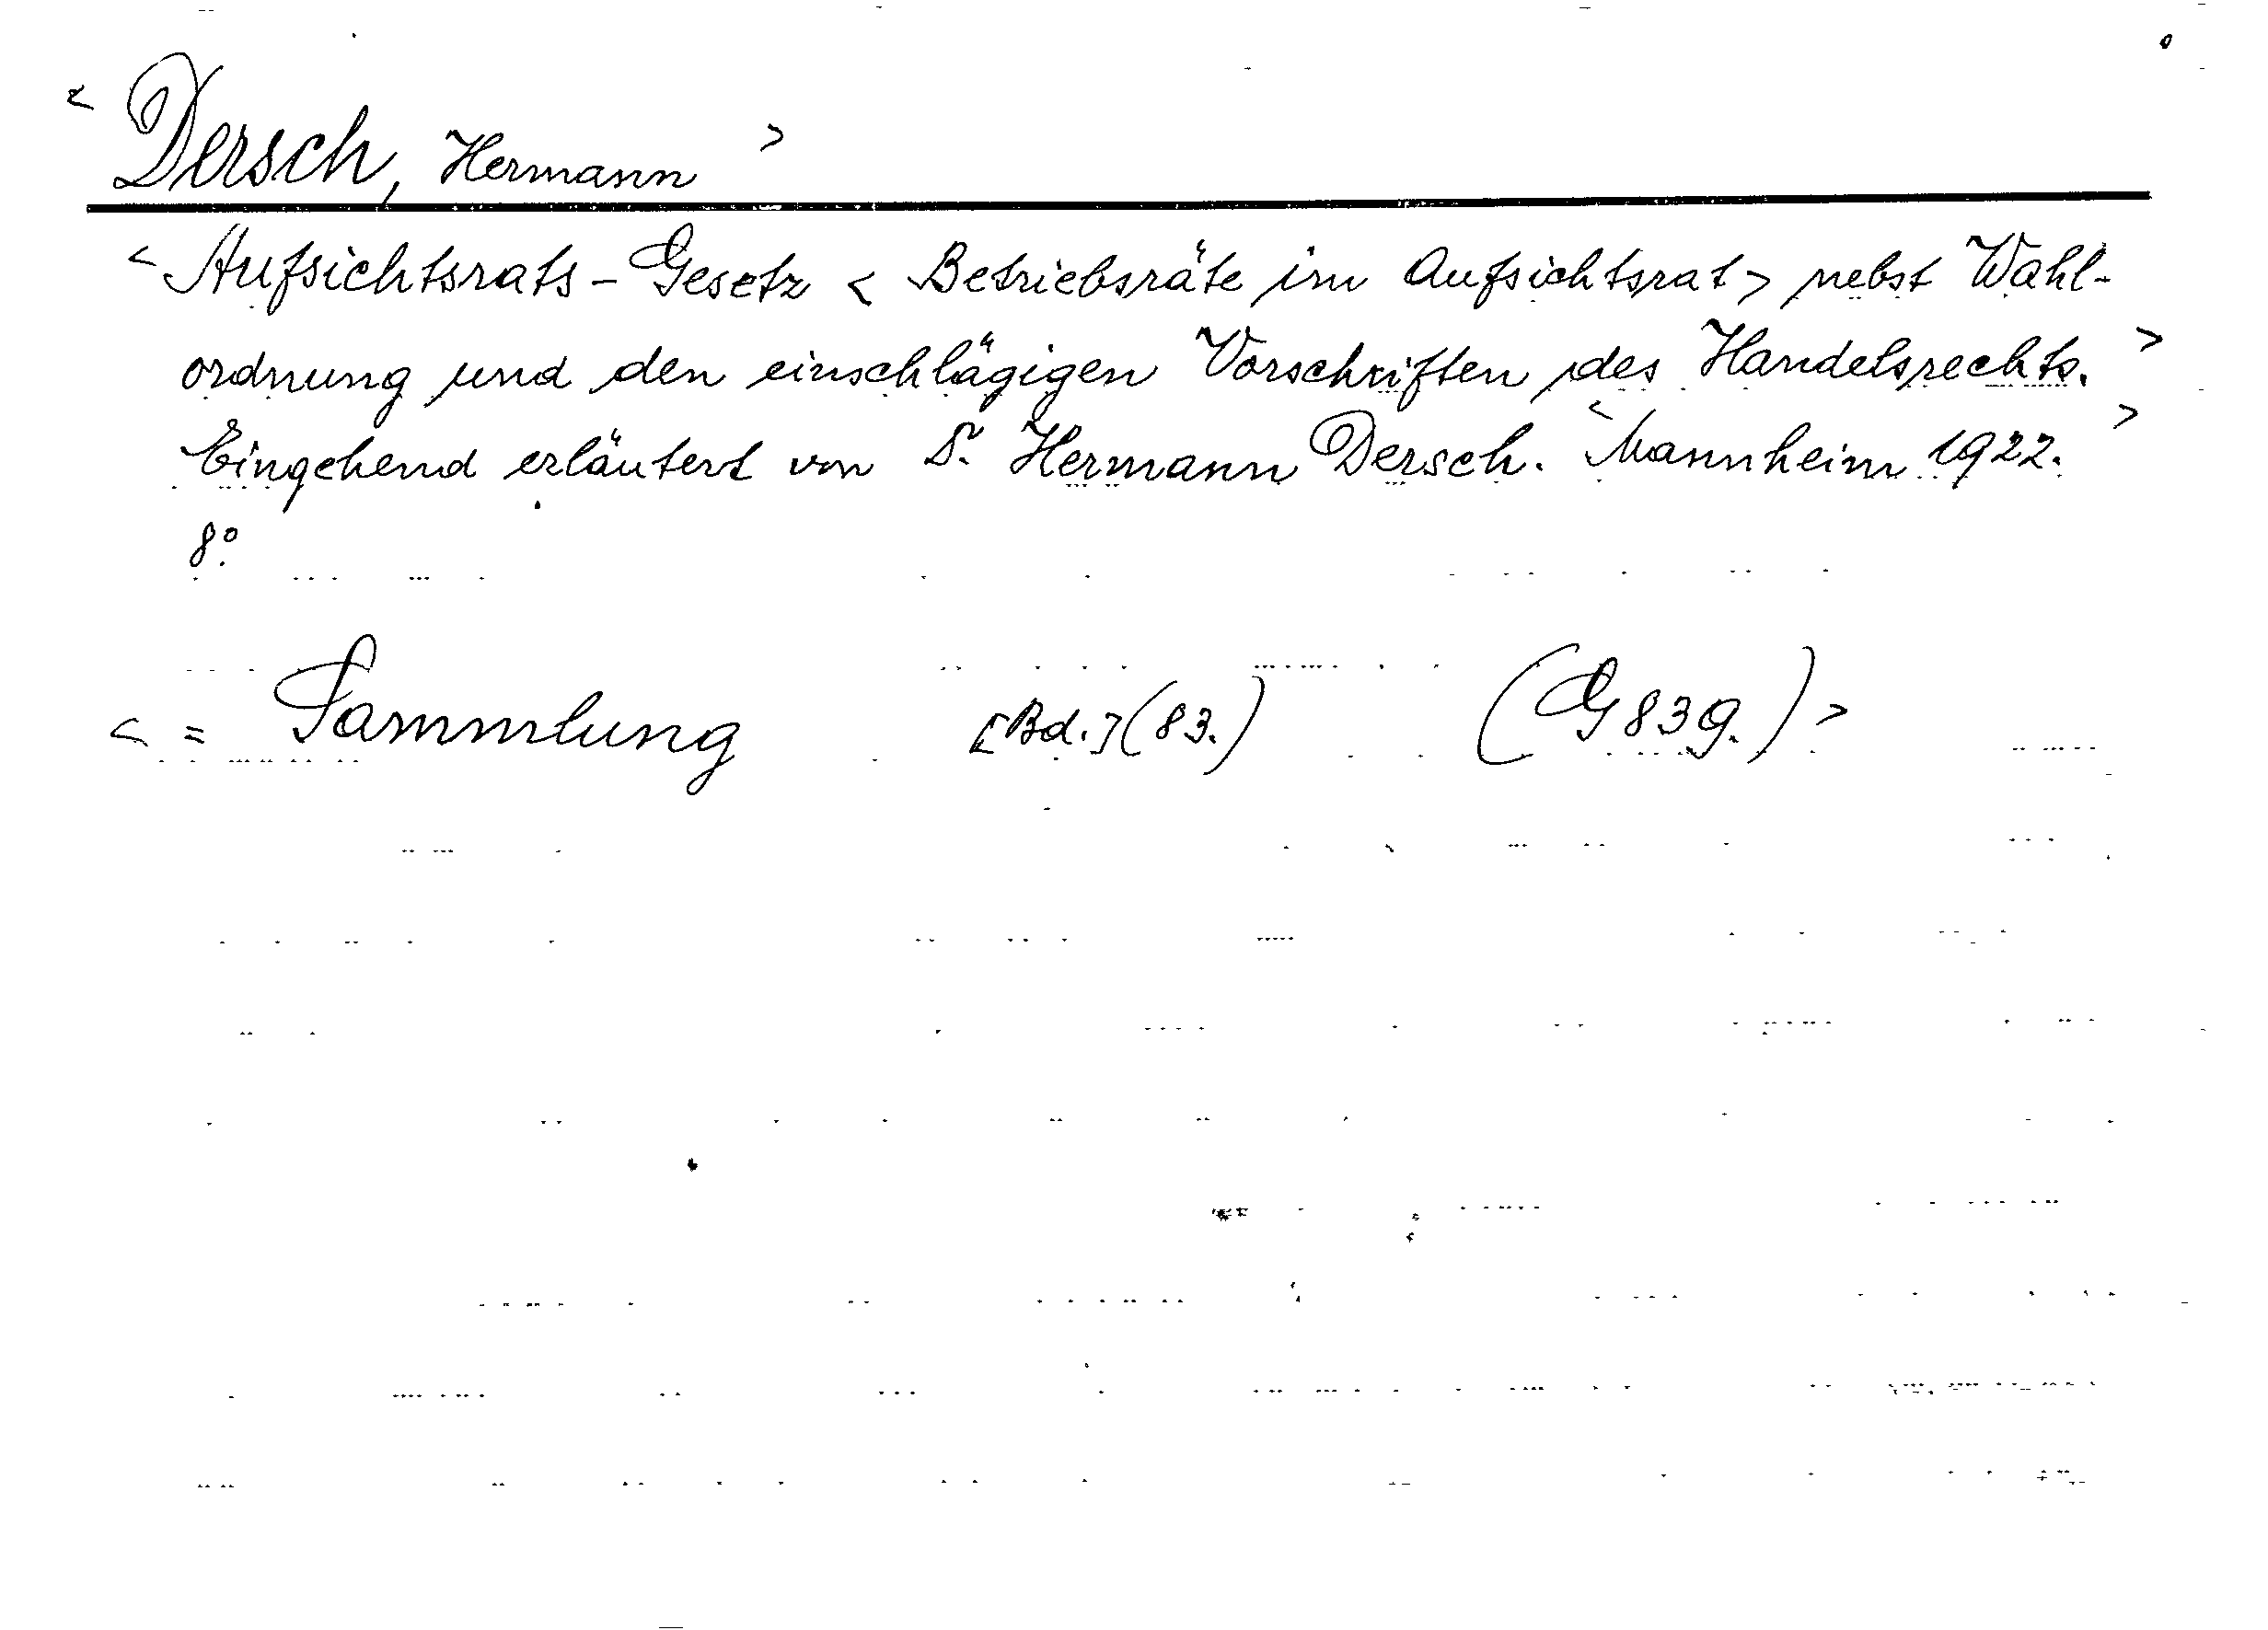 < Dersch, Hermann >
< Aufsichtsrats-Gesetz < Betriebsräte im Aufsichtsrat > nebst Wahl-
ordnung und den einschlägigen Vorschriften des Handelsrechts. >
Eingehend erläutert von Dr. Hermann Dersch. < Mannheim 1922. >
8°.
< = Sammlung [Bd.] (83.) (G 839.) >